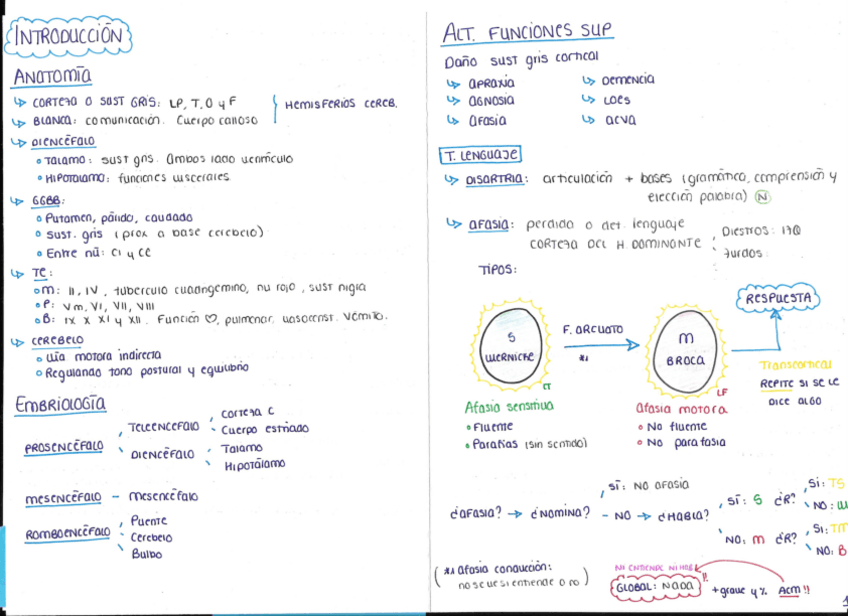 INTRODUCCIÓN
ANATOMÍA
↳ CORTEZA O SUST GRIS: LP, T, O y F
↳ BLANCA: comunicación. Cuerpo calloso
HEMISFERIOS CEREB.
↳ DIENCÉFALO
• TALAMO: sust gris. Ambos lado ventrículo
• HIPOTALAMO: funciones viscerales
↳ GGBB:
• Putamen, pálido, caudado
• Sust. gris (prox a base cerebelo)
• Entre nú: CI y CE
↳ TE:
• M: II, IV, tuberculo cuadngemino, nu rojo, sust nigra
• P: Vm, VI, VII, VIII
• B: IX X XI y XII. Función ♡, pulmonar, vasoconst. Vómito.
↳ CEREBELO
• Vía motora indirecta
• Regulando tono postural y equilibrio
EMBRIOLOGÍA
PROSENCÉFALO
TELENCEFALO
Corteza C
Cuerpo estriado
DIENCÉFALO
Talamo
Hipotálamo
MESENCÉFALO - mesencéfalo
ROMBOENCÉFALO
Puente
Cerebelo
Bulbo
ALT. FUNCIONES SUP
Daño sust gris cortical
↳ APRAXIA
↳ DEMENCIA
↳ AGNOSIA
↳ LOES
↳ AFASIA
↳ ACVA
T. LENGUAJE
↳ DISARTRIA: articulación + bases (gramática, comprensión y
elección palabra) N
↳ AFASIA: perdida o det. lenguaje
CORTEZA DEL H. DOMINANTE
Diestros: IZQ
Zurdos:
TIPOS:
RESPUESTA
S
WERNICKE
LT
F. ARCUATO
*1
M
BROCA
LF
Transcortical
REPITE SI SE LE
DICE ALGO
Afasia sensitiva
• Fluente
• Parafias (sin sentido)
Afasia motora
• No fluente
• No parafasia
¿AFASIA? → ¿NOMINA?
SÍ: NO AFASIA
- NO → ¿HABLA?
SÍ: S ¿R?
Si: TS
NO: W
NO: M ¿R?
SI: TM
NO: B
(*1 Afasia conducción:
no se ve si entiende o no)
NI ENTIENDE NI HAB
GLOBAL: NADA
+ grave y % ACM!!